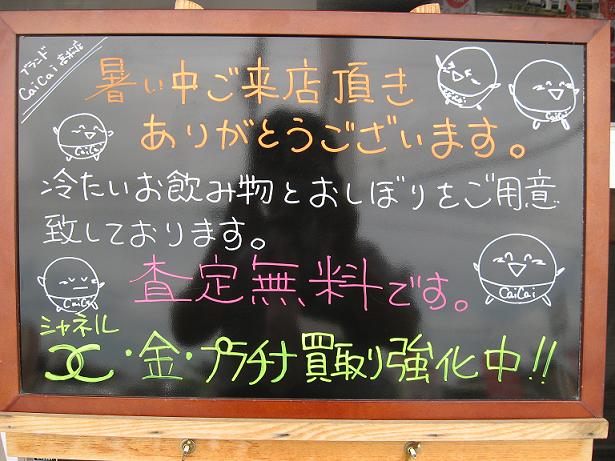 ブランド
CaiCai 高松店
暑い中ご来店頂き
ありがとうございます。
冷たいお飲み物とおしぼりをご用意
致しております。
査定無料です。
シャネル
・金・プラチナ買取り強化中!!
CaiCai
CaiCai
CaiCai
CaiCai
CaiCai